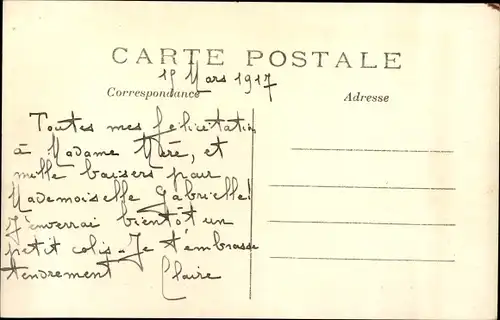 CARTE POSTALE
18 Mars 1917
Correspondance
Adresse
Toutes mes félicitations
à Madame Méré, et
mille baisers pour
Mademoiselle Gabrielle!
J'enverrai bientôt un
petit colis. Je t'embrasse
tendrement Claire